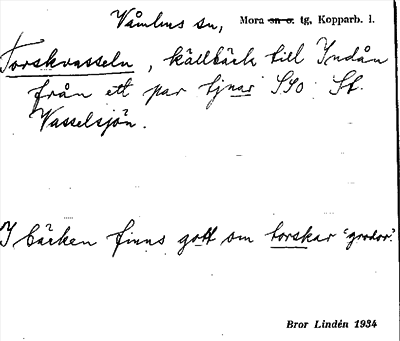 Våmhus sn, Mora sn o. tg, Kopparb. l.
Torskvasseln, källbäck till Indån
från ett par tjnar SSO St.
Vasselsjön.
I bäcken finns gott om torskar 'grodor'.
Bror Lindén 1934